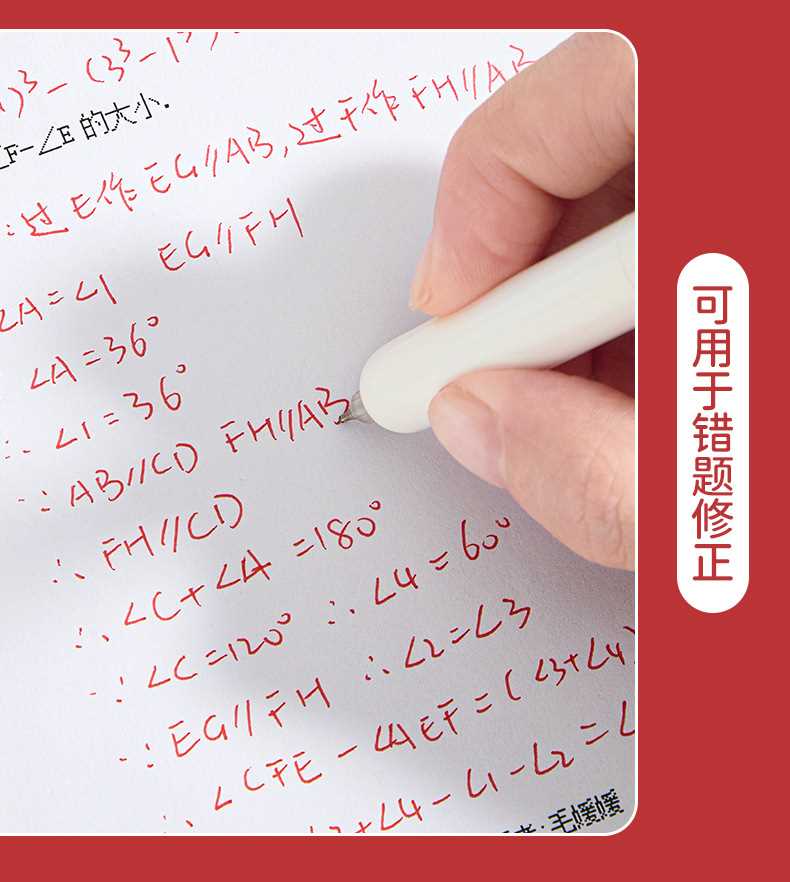 )³-(3³-1³).
F-∠E的大小.
:过E作EG//AB,过F作FH//AB
∠A=∠1 EG//FH
∠A=36°
∴ ∠1=36°
∵ AB//CD FH//AB
∴ FH//CD
∴ ∠C+∠A =180°
∵ ∠C=120° ∴ ∠4=60°
∵ EG//FH ∴ ∠2=∠3
∴ ∠CFE-∠AEF=(∠3+∠4)
+∠4-∠1-∠2=∠
:毛媛媛
可用于错题修正